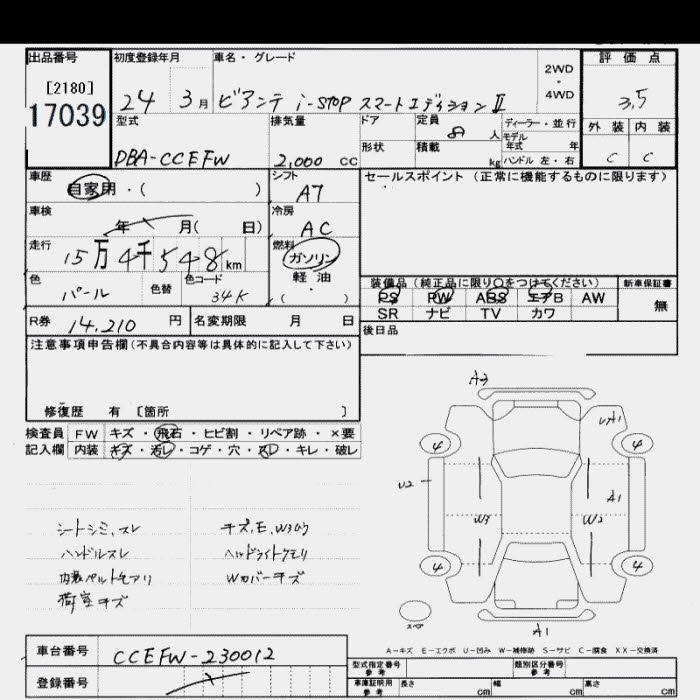 出品番号 初度登録年月 車名・グレード 2WD・4WD 評価点
[2180]
17039 24 3月 ビアンテ i-STOP スマートエディションⅡ 3.5
型式 排気量 ドア 定員 8人 ディーラー・並行 外装 内装
モデル年式 年
DBA-CCEFW 2,000 cc 形状 積載 kg ハンドル 左・右 C C
車歴 自家用・( ) シフト AT セールスポイント (正常に機能するものに限ります)
車検 年 月( 日) 冷房 AC
走行 15万4千548km 燃料 ガソリン
軽油
( )
色 パール 色替 色コード 34K
装備品 (純正品に限り○をつけてください) 新車保証書
PS PW ABS エアB AW 無
SR ナビ TV カワ
R券 14,210 円 名変期限 月 日
後日品
注意事項申告欄(不具合内容等は具体的に記入して下さい)
修復歴 有 [箇所 ]
検査員 FW キズ・飛石・ヒビ割・リペア跡・×要
記入欄 内装 キズ・汚レ・コゲ・穴・スレ・キレ・破レ
A3
UA1
4 4
U2
A1
W3 W2
4 4
スペア
A1
シートシミ、スレ
ハンドルスレ
内装ベルトモアリ
荷室キズ
ヘッドライトクモリ
Wカバーキズ
A-キズ E-エクボ U-凹み W-補修跡 S-サビ C-腐食 XX-交換済
車台番号 CCEFW-230012
登録番号
型式指定番号 参考 類別区分番号 参考
車庫証明用 参考 長さ cm 幅 cm 高さ cm